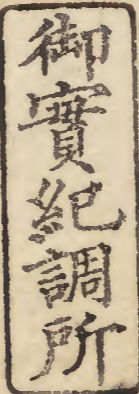 御實紀調所